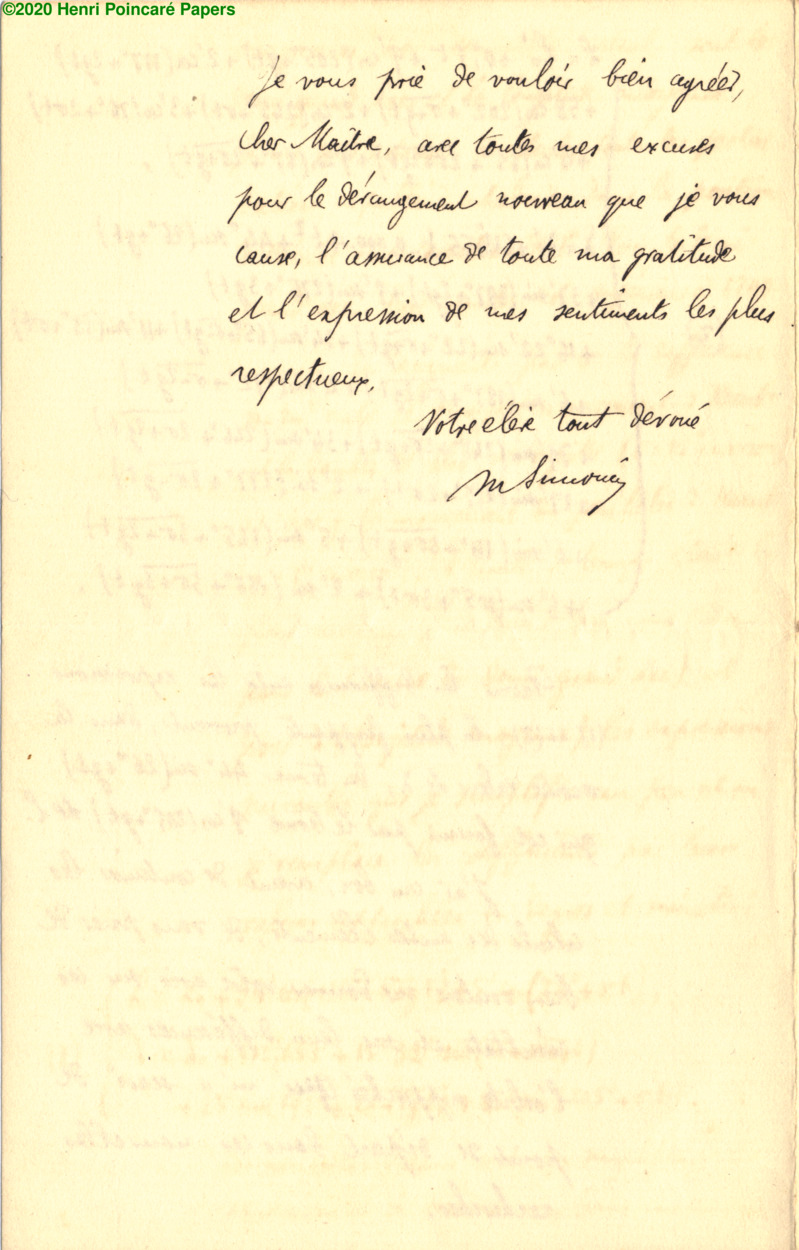 ©2020 Henri Poincaré Papers
Je vous prie de vouloir bien agréer,
cher Maître, avec toutes mes excuses
pour le dérangement nouveau que je vous
cause, l'assurance de toute ma gratitude
et l'expression de mes sentiments les plus
respectueux.
Votre élève tout dévoué
M Simonin